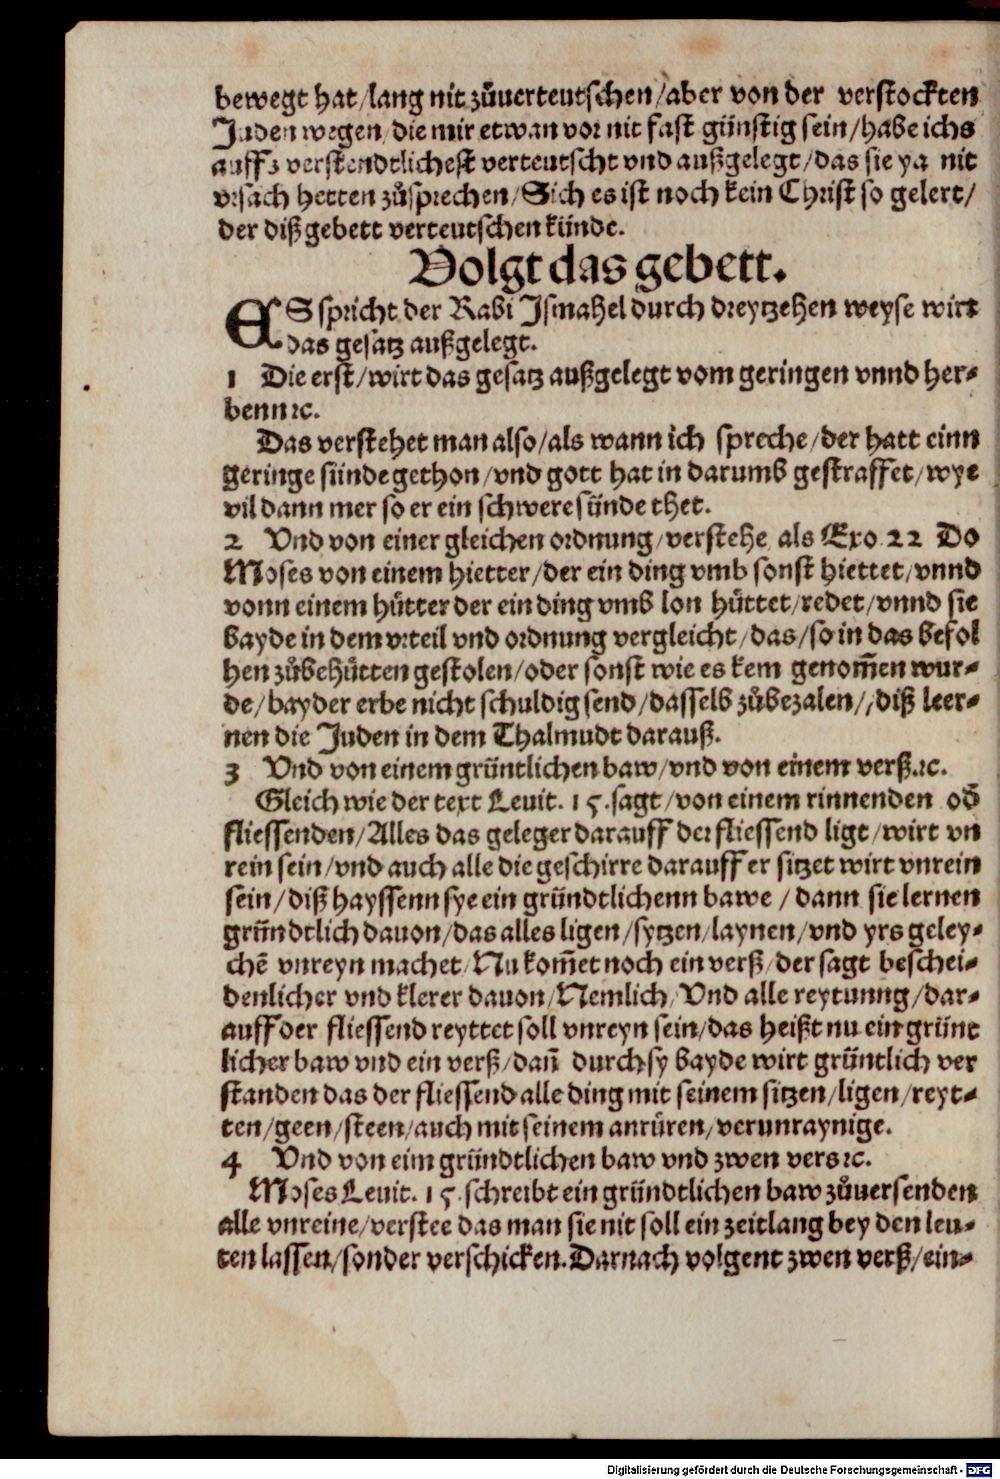 bewegt hat/lang nit zůuerteutschen/aber von der verstockten
Juden wegen/die mir etwan vor nit fast günstig sein/habe ichs
auffʒ verstendtlichest verteutscht vnd außgelegt/das sie ya nit
vrsach hetten zůsprechen/Sich es ist noch kein Christ so gelert/
der diß gebett verteutschen künde.
Volgt das gebett.
ES spricht der Rabi Jsmahel durch dreytzehen weyse wirt
das gesatz außgelegt.
1 Die erst/wirt das gesatz außgelegt vom geringen vnnd her⸗
benn ⁊c.
Das verstehet man also/als wann ich spreche/der hatt einn
geringe sünde gethon/vnd gott hat in darumb gestraffet/wye
vil dann mer so er ein schwere sünde thet.
2 Vnd von einer gleichen ordnung/verstehe als Exo 22 Do
Moses von einem hietter/der ein ding vmb sonst hiettet/vnnd
vonn einem hütter der ein ding vmb lon hüttet/redet/vnnd sie
bayde in dem vrteil vnd ordnung vergleicht/das/so in das befol
hen zůbehütten gestolen/oder sonst wie es kem genom̄en wur⸗
de/bayder erbe nicht schuldig send/dasselb zůbezalen/,diß leer⸗
nen die Juden in dem Thalmudt darauß.
3 Vnd von einem grüntlichen baw/vnd von einem verß.⁊c.
Gleich wie der text Leuit. 15.sagt/von einem rinnenden od̄
fliessenden/Alles das geleger darauff der fliessend ligt/wirt vn
rein sein/vnd auch alle die geschirre darauff er sitzet wirt vnrein
sein/diß hayssenn sye ein gründtlichenn bawe/dann sie lernen
gründtlich dauon/das alles ligen/sytzen/laynen/vnd yrs geley⸗
chē vnreyn machet/Nu kom̄et noch ein verß/der sagt beschei⸗
denlicher vnd klerer dauon/Nemlich/Vnd alle reytunng/dar⸗
auff der fliessend reyttet soll vnreyn sein/das heißt nu ein grünt
licher baw vnd ein verß/dan̄ durch sy bayde wirt grüntlich ver
standen das der fliessend alle ding mit seinem sitzen/ligen/reyt⸗
ten/geen/steen/auch mit seinem anrüren/verunraynige.
4 Vnd von eim gründtlichen baw vnd zwen vers ⁊c.
Moses Leuit. 15.schreibt ein gründtlichen baw zůuersenden
alle vnreine/verstee das man sie nit soll ein zeitlang bey den leu⸗
ten lassen/sonder verschicken.Darnach volgent zwen verß/ein⸗
Digitalisierung gefördert durch die Deutsche Forschungsgemeinschaft - DFG